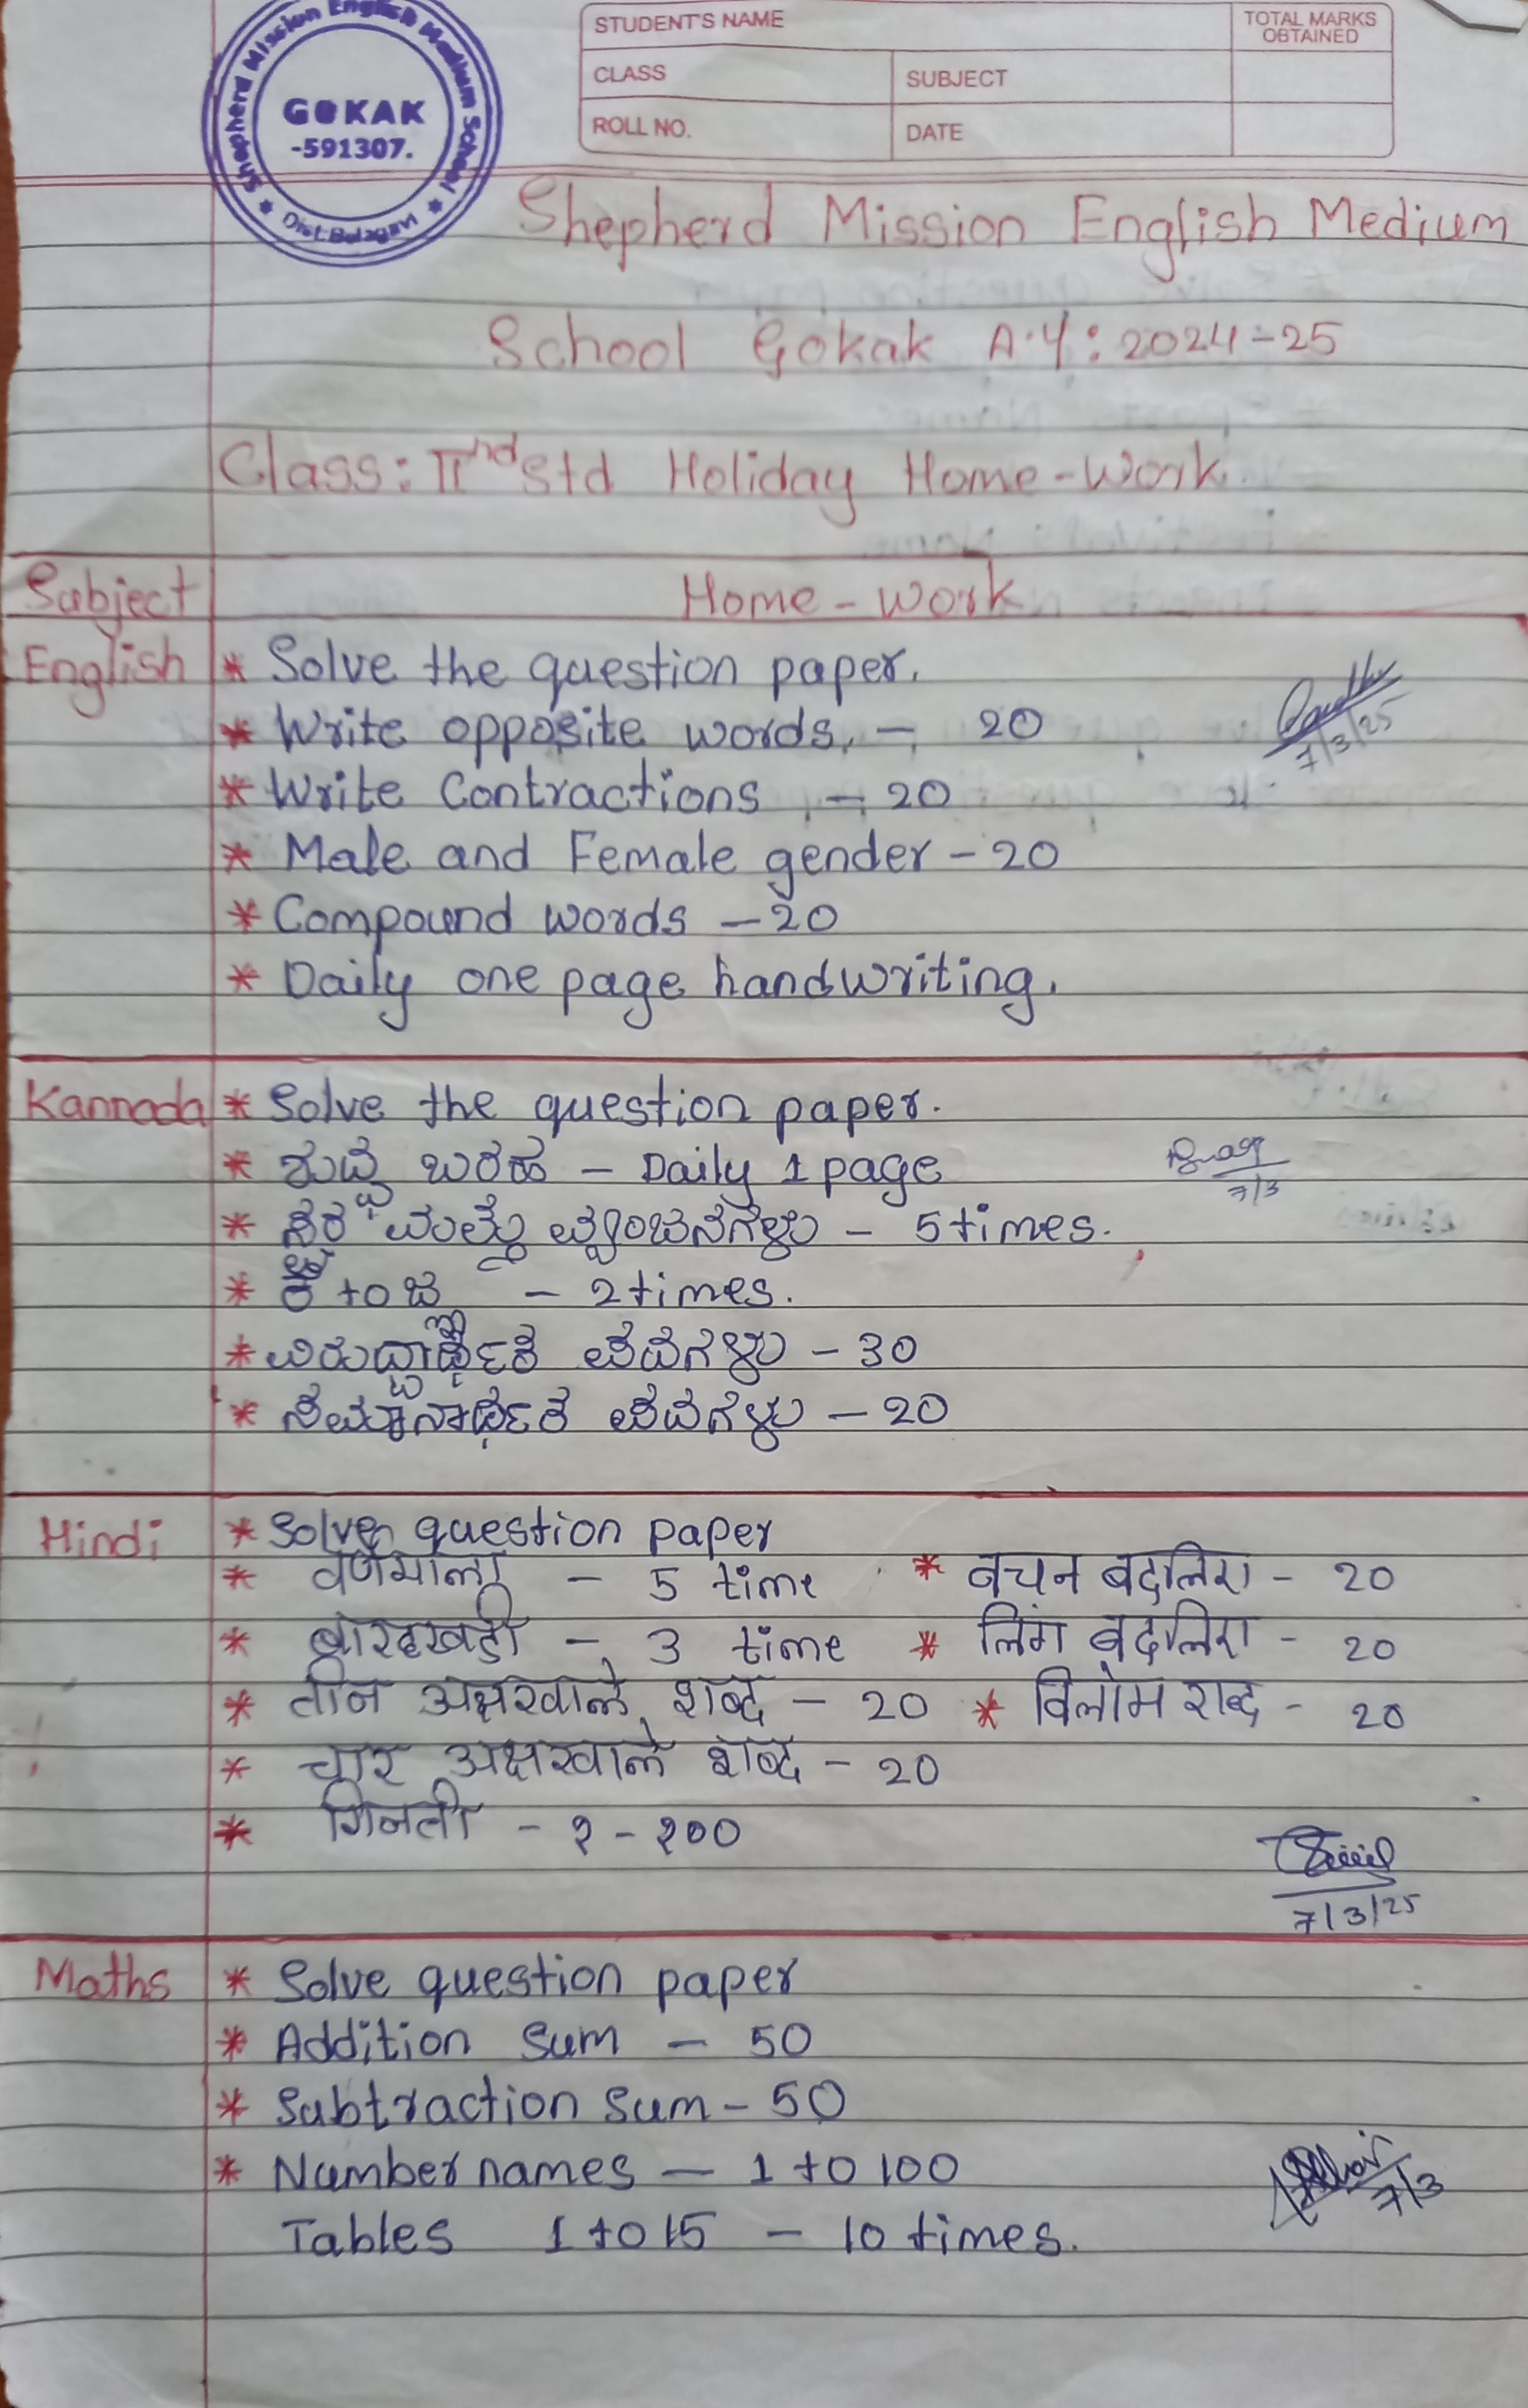 Shepherd Mission English Medium School
GOKAK
-591307.
Dist.Belagavi
STUDENT'S NAME
TOTAL MARKS OBTAINED
CLASS
SUBJECT
ROLL NO.
DATE
Shepherd Mission English Medium
School Gokak A.Y: 2024-25
Class: IInd Std Holiday Home-Work
Subject Home-Work
English * Solve the question paper.
* Write opposite words. - 20
7/3/25
* Write Contractions - 20
* Male and Female gender - 20
* Compound words - 20
* Daily one page handwriting.
Kannada * Solve the question paper.
* ಶುದ್ಧ ಬರಹ - Daily 1 page
7/3
* ಸ್ವರ ಮತ್ತು ವ್ಯಂಜನಗಳು - 5 times.
* to - 2 times.
* ವಿರುದ್ಧಾರ್ಥಕ ಪದಗಳು - 30
* ಸಮಾನಾರ್ಥಕ ಪದಗಳು - 20
Hindi * Solve question paper
* वर्णमाला - 5 time * वचन बदलिए - 20
* बारहखड़ी - 3 time * लिंग बदलिए - 20
* तीन अक्षरवाले शब्द - 20 * विलोम शब्द - 20
* चार अक्षरवाले शब्द - 20
* गिनती - १ - १००
7/3/25
Maths * Solve question paper
* Addition Sum - 50
* Subtraction Sum - 50
* Number names - 1 to 100
7/3
Tables 1 to 15 - 10 times.